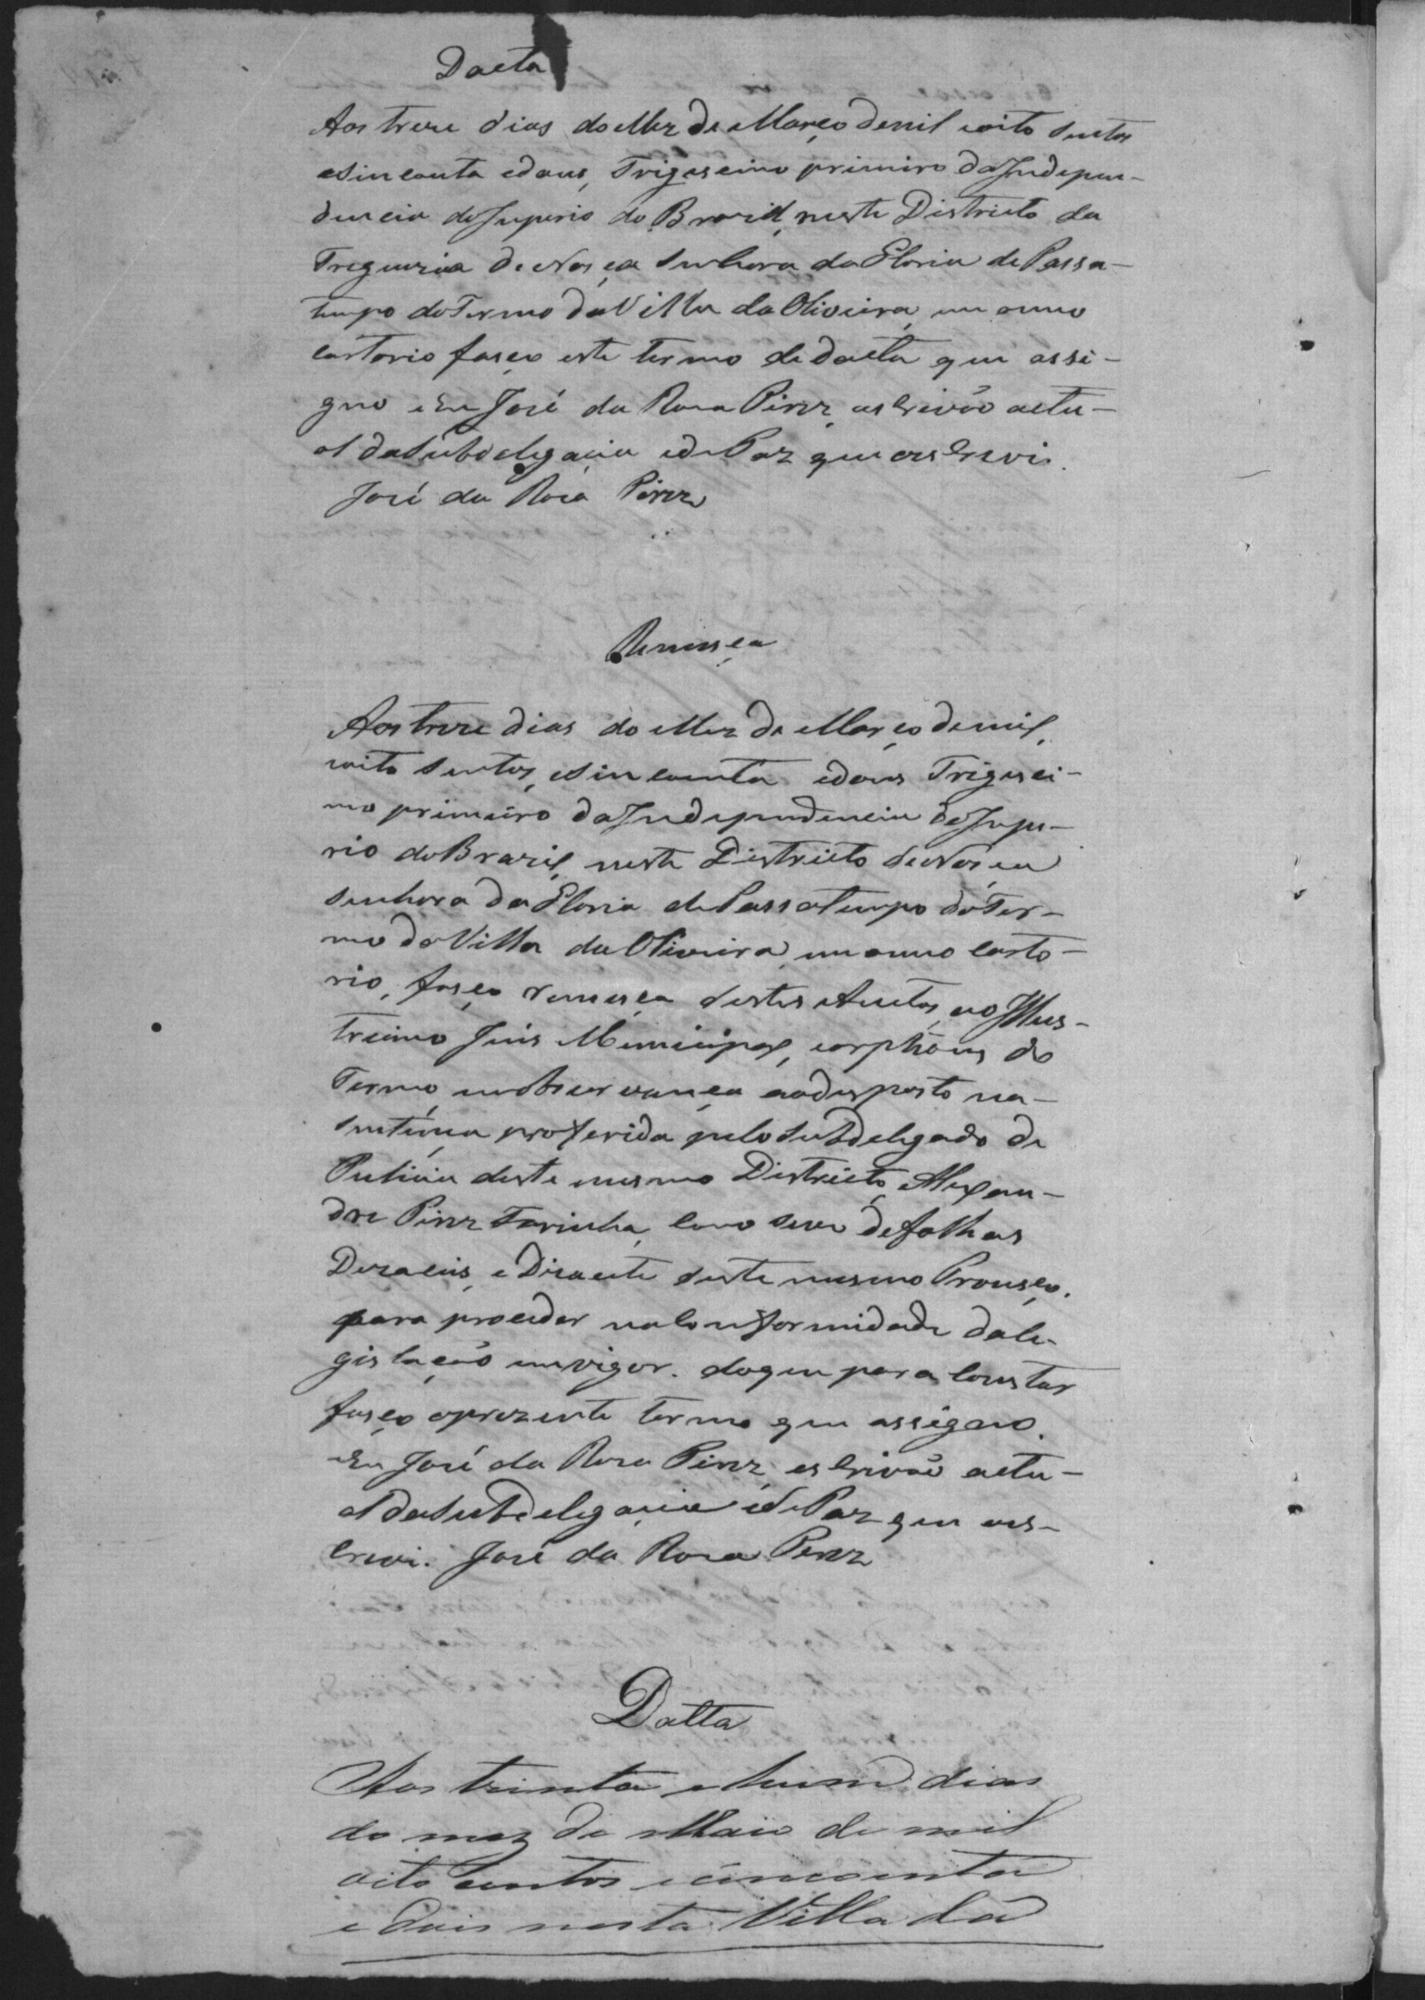 Dacta
Aos treze dias do Mez de Março de mil e oito sentos
e Sincoenta e dous, Trigeseimo primeiro da Indepen-
dencia do Imperio do Brazil, neste Districto da
Freguezia de Nosça Senhora da Gloria de Passa-
tempo do Termo da Villa da Oliveira, em omeo
cartorio fasço este termo de dacta que assi-
gno e Eu José da Roza Pirez, escrivão actu-
al da Subdelegacia e de Paz que escrevi.
José da Roza Pirez
Remesça
Aos treze dias do Mez de Março de mil,
e oito sentos, e Sincoenta e dous Trigesei-
mo primeiro da Independencia do Impe-
rio do Brazil, neste Districto de Nosça
Senhora da Gloria de Passatempo do Ter-
mo da Villa da Oliveira, em omeo carto-
rio, fasço remesça destes Autos, ao Illus-
trecimo Juis Municipal, e orphãos do
Termo, em observança ao desposto na
sentença proferida pelo Subdelegado de
Puliciia deste mesmo Districto, Alexan-
dre Pirez Farinha, como seve de folhas
Dezaceis, e Dizacete deste mesmo Proceso.
para proceder na conformidade da le-
gislação em vigor. do que para constar
fasço o prezente termo que assigno.
e Eu José da Roza Pirez, escrivão actu-
al da Subdelegacia e de Paz que es-
crevi. José da Roza Pirez
Datta
Aos trinta e hum dias
do mez de Maio de mil
oito centos e cincoenta
e dois nesta Villa da